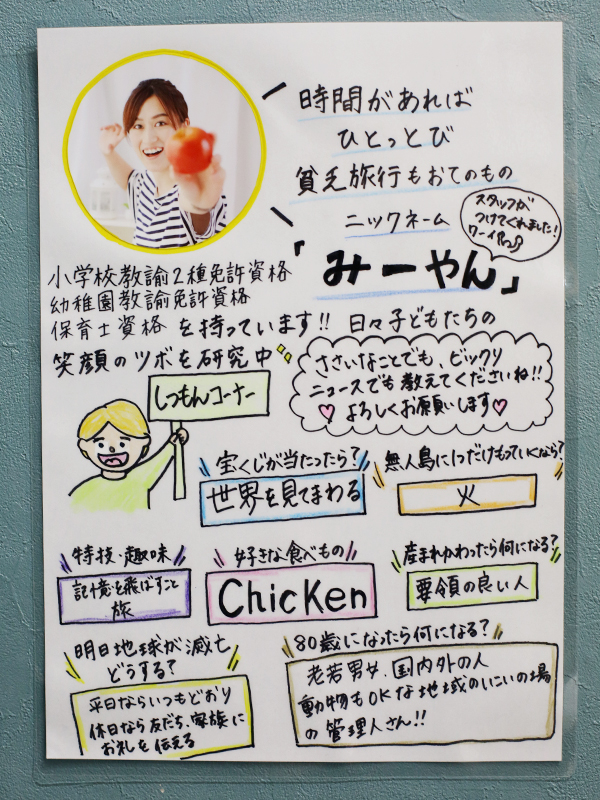 時間があれば
ひとっとび
貧乏旅行もおてのもの
ニックネーム
「みーやん」
スタッフが
つけてくれました!
ワーイ
小学校教諭2種免許資格
幼稚園教諭免許資格
保育士資格を持っています!! 日々子どもたちの
笑顔のツボを研究中
ささいなことでも、ビックリ
ニュースでも教えてくださいね!!
よろしくお願いします
しつもんコーナー
宝くじが当たったら?
世界を見てまわる
無人島に1つだけもっていくなら?
火
特技・趣味
記憶を飛ばすこと
旅
好きな食べもの
Chicken
産まれかわったら何になる?
要領の良い人
明日地球が滅亡
どうする?
平日ならいつもどおり
休日なら友だち、家族に
お礼を伝える
80歳になったら何になる?
老若男女、国内外の人
動物もOKな地域のいこいの場
の管理人さん!!